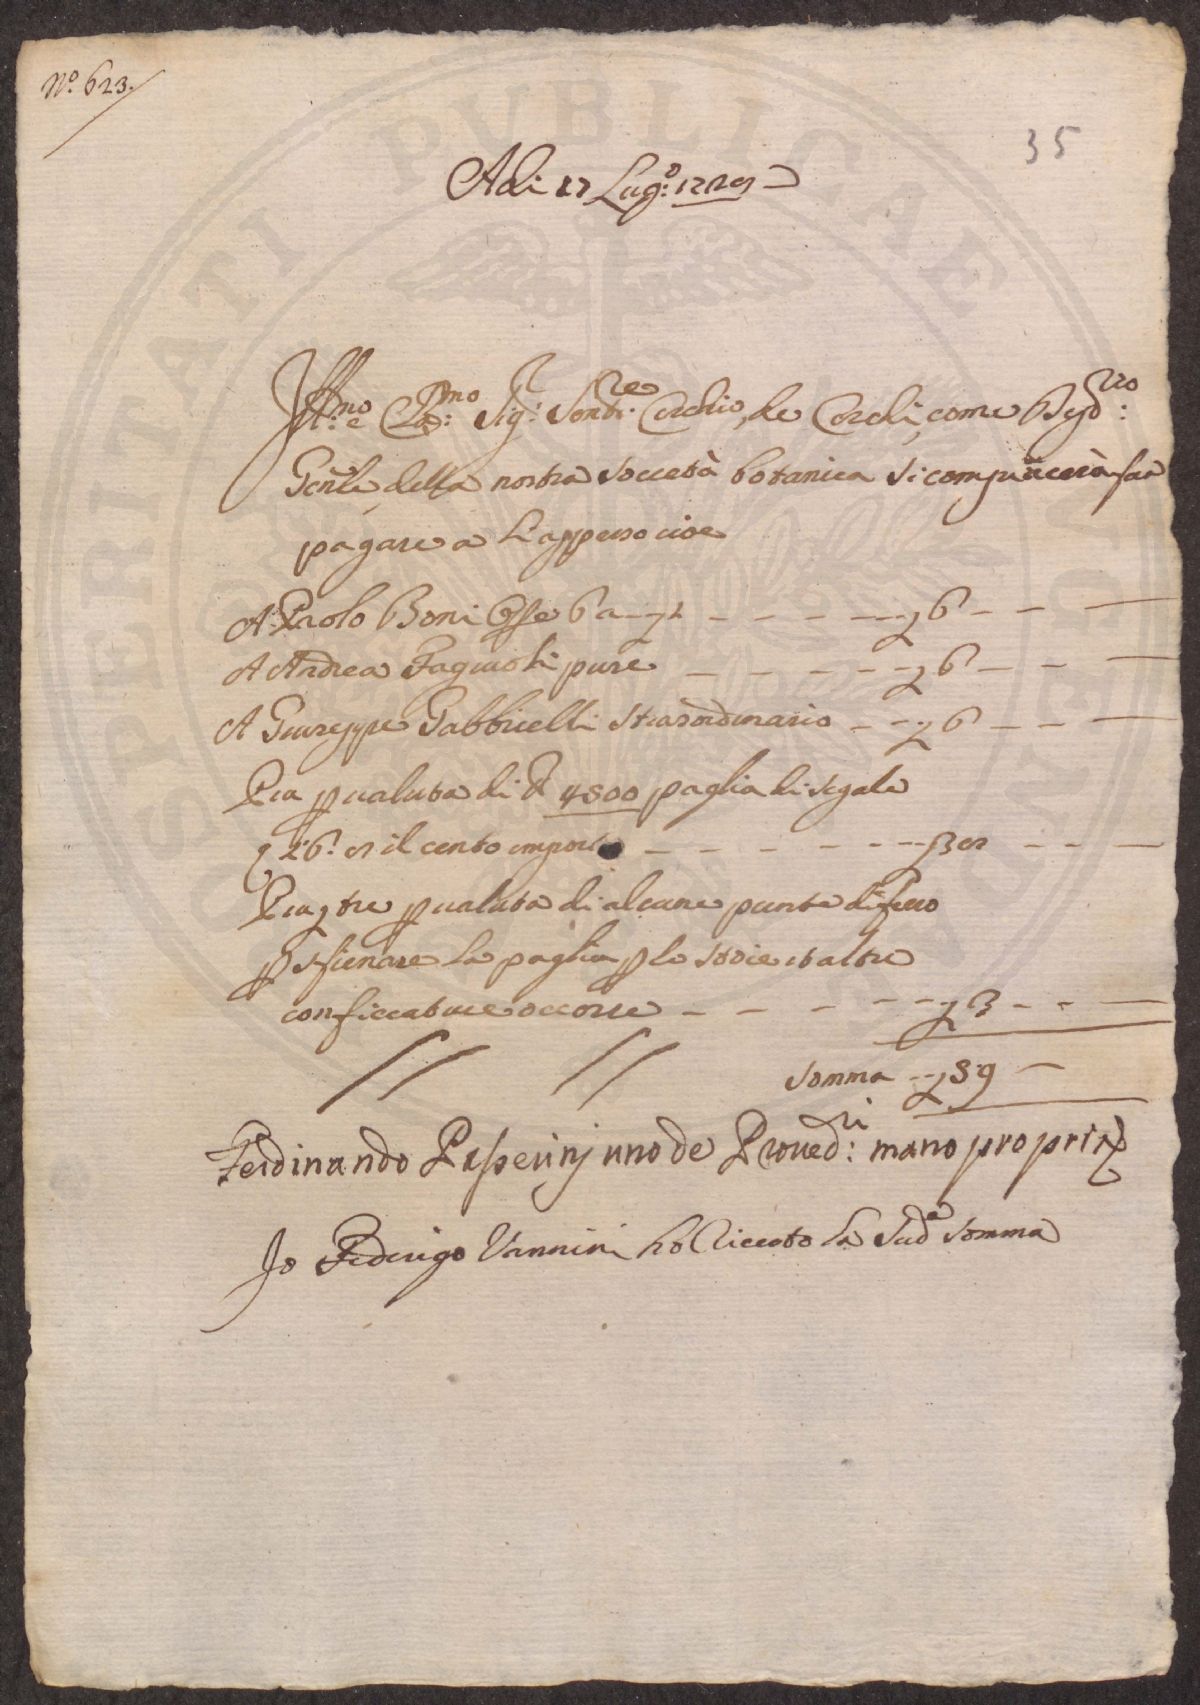 N.º 623.
35
Adi 17 Lug.º 1729
Ill.mo e Cl.mo Sig.r Send.re Cerchio de Cerchi, come Deg.mo
Gen̄le della nostra Soccietà botanica si compiacerà far
pagare a li appreso cioe
A Paolo Boni Opre 6 a £ 1 £ 6
A Andrea Faguioli pure £ 6
A Giuseppe Gabbrielli straordinario £ 6
E piu p valuta di 4500 paglia di segale
il cento importa £ 3
p valuta di alcune punte di ferro
la paglia p le stoie et altre
conficcature occorse £ 3
Somma £ 59
Ferdinando Passerinj uno de Proved:ri mano propria
Io Federigo Vannini ho Riceuto la Sud.a Somma
PROSPERITATI PUBLICAE